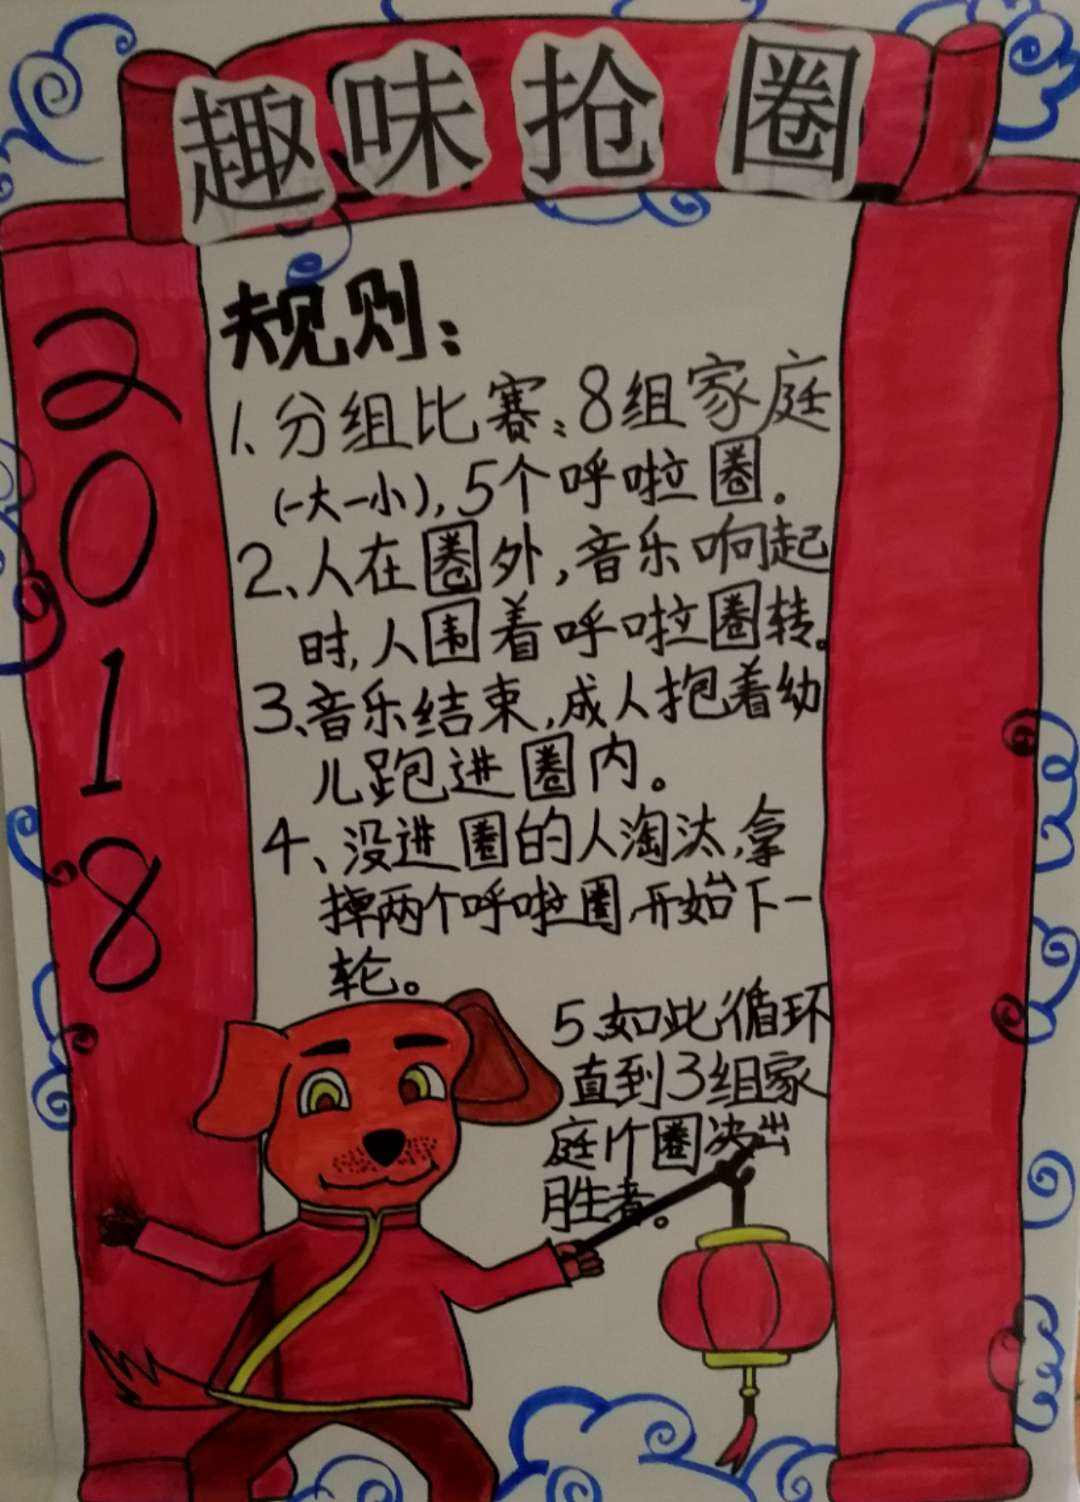 趣味抢圈
2018
规则：
1.分组比赛：8组家庭
(一大一小),5个呼啦圈。
2、人在圈外,音乐响起
时,人围着呼啦圈转。
3、音乐结束,成人抱着幼
儿跑进圈内。
4、没进圈的人淘汰,拿
掉两个呼啦圈,开始下一
轮。
5、如此循环
直到3组家
庭1个圈决出
胜者。